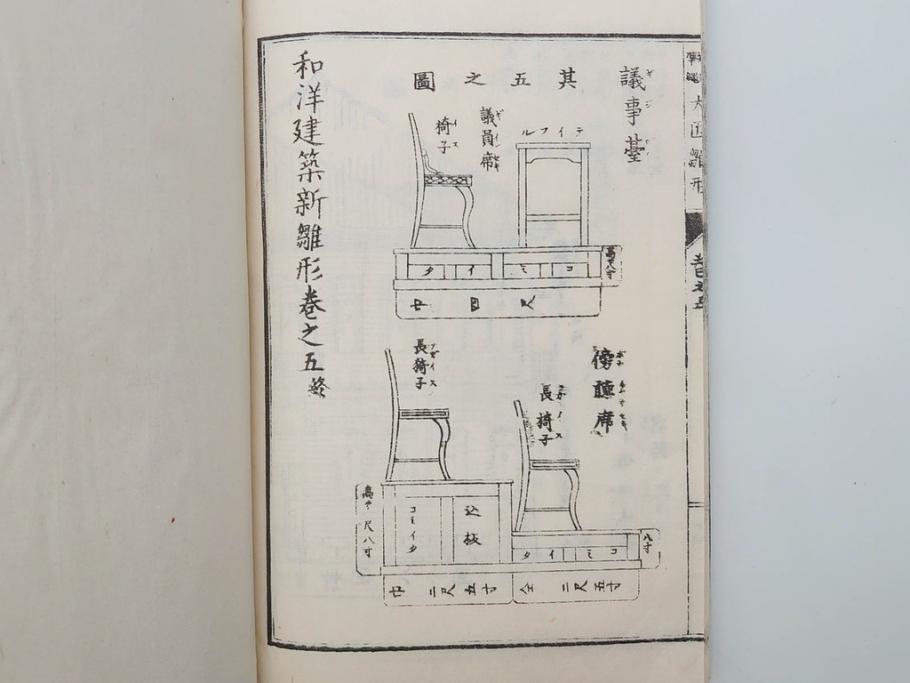 議事臺
ギジ
其五之圖
テイフル
議員席
ギイン
椅子
イス
高サ八寸
コミイタ
巾四尺
傍聴席
長椅子
長椅子
込板
コミイタ
高サ
尺八寸
コミイタ
八寸
巾二尺五寸
仝二尺五寸
和洋建築新雛形巻之五終
大匠雛形